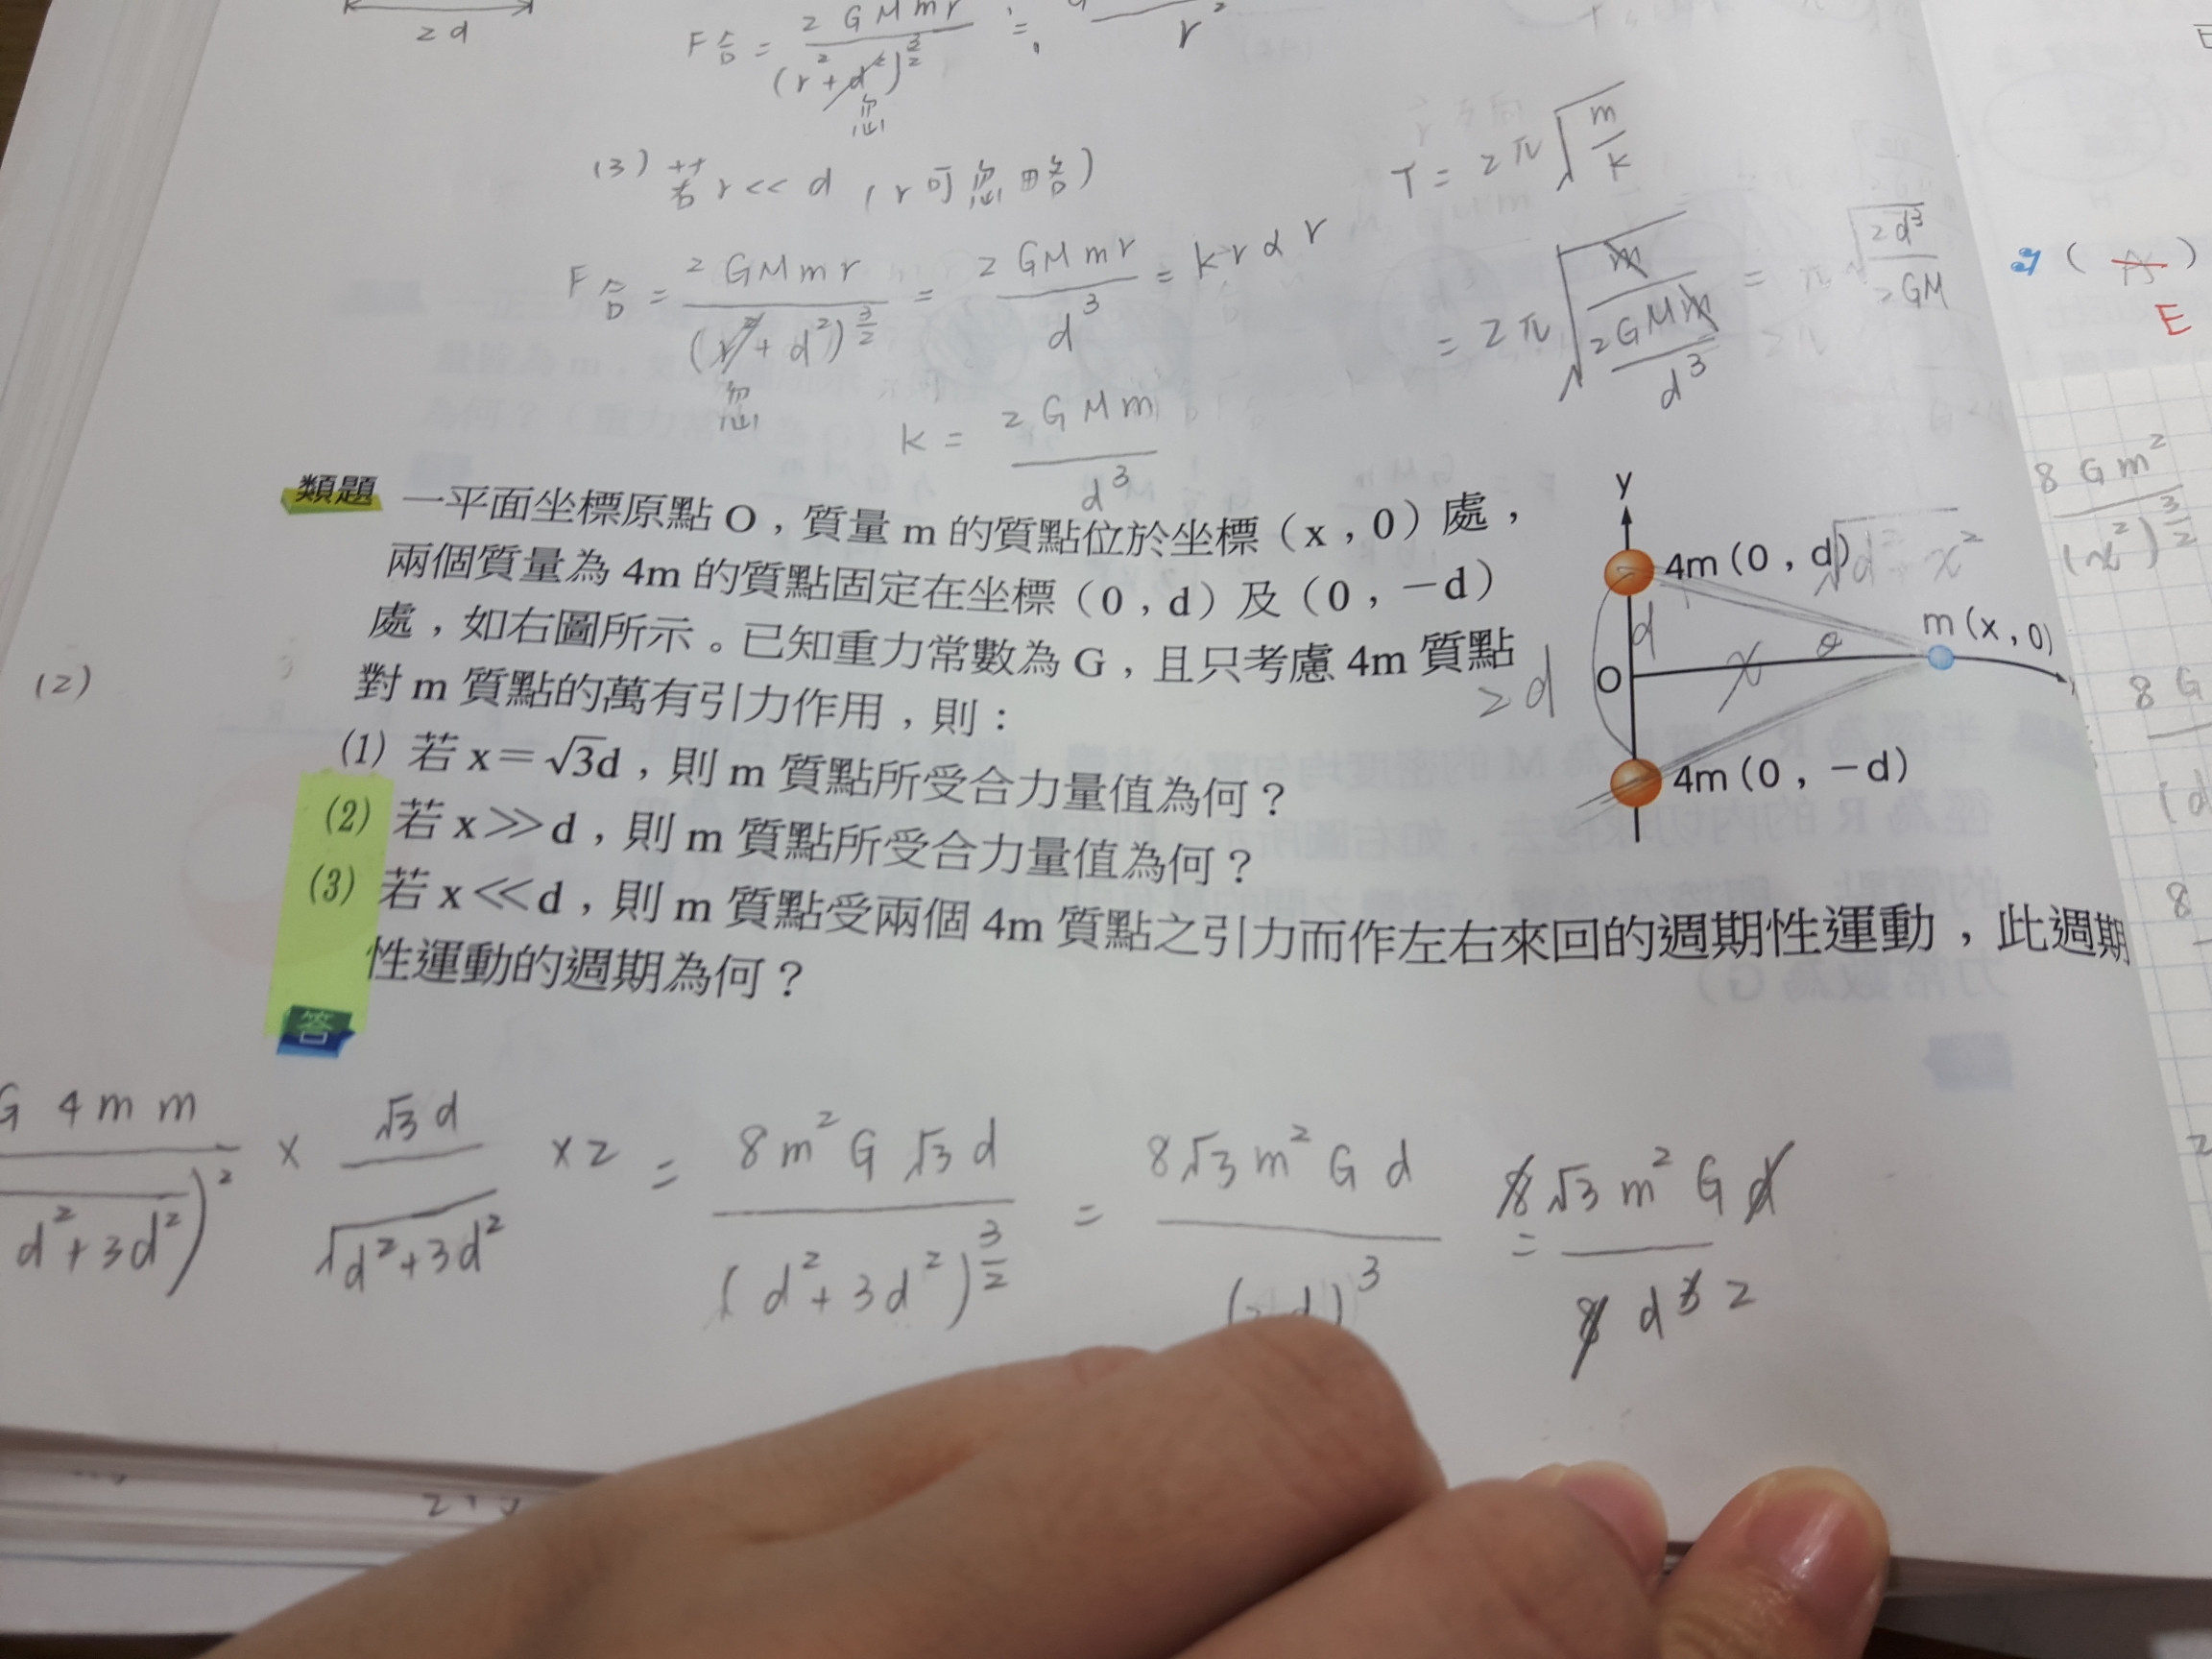 2d
F合 = 2GMmr / (r²+d²)^3/2 ≒ r²
忽
(3) 若 r << d (r可忽略)
F合 = 2GMmr / (r²+d²)^3/2 = 2GMmr / d³ = kr α r
忽
k = 2GMm / d³
T = 2π √(m/k)
= 2π √(m / (2GMm / d³)) = π √(2d³ / 2GM)
類題 一平面坐標原點 O，質量 m 的質點位於坐標（x，0）處，
兩個質量為 4m 的質點固定在坐標（0，d）及（0，－d）
處，如右圖所示。已知重力常數為 G，且只考慮 4m 質點
對 m 質點的萬有引力作用，則：
(1) 若 x＝√3d，則 m 質點所受合力量值為何？
(2) 若 x≫d，則 m 質點所受合力量值為何？
(3) 若 x≪d，則 m 質點受兩個 4m 質點之引力而作左右來回的週期性運動，此週期
性運動的週期為何？
答
y
4m (0，d)
d
m (x，0)
O
x
θ
2d
4m (0，－d)
(2)
G4mm / (√d²+3d²)² × √3d / √d²+3d² ×2 = 8m²G√3d / (d²+3d²)^3/2 = 8√3m²Gd / (2d)³ = 8√3m²Gd / 8d³ 2
E
8Gm² / (x²)^3/2
8G
(d
8
2